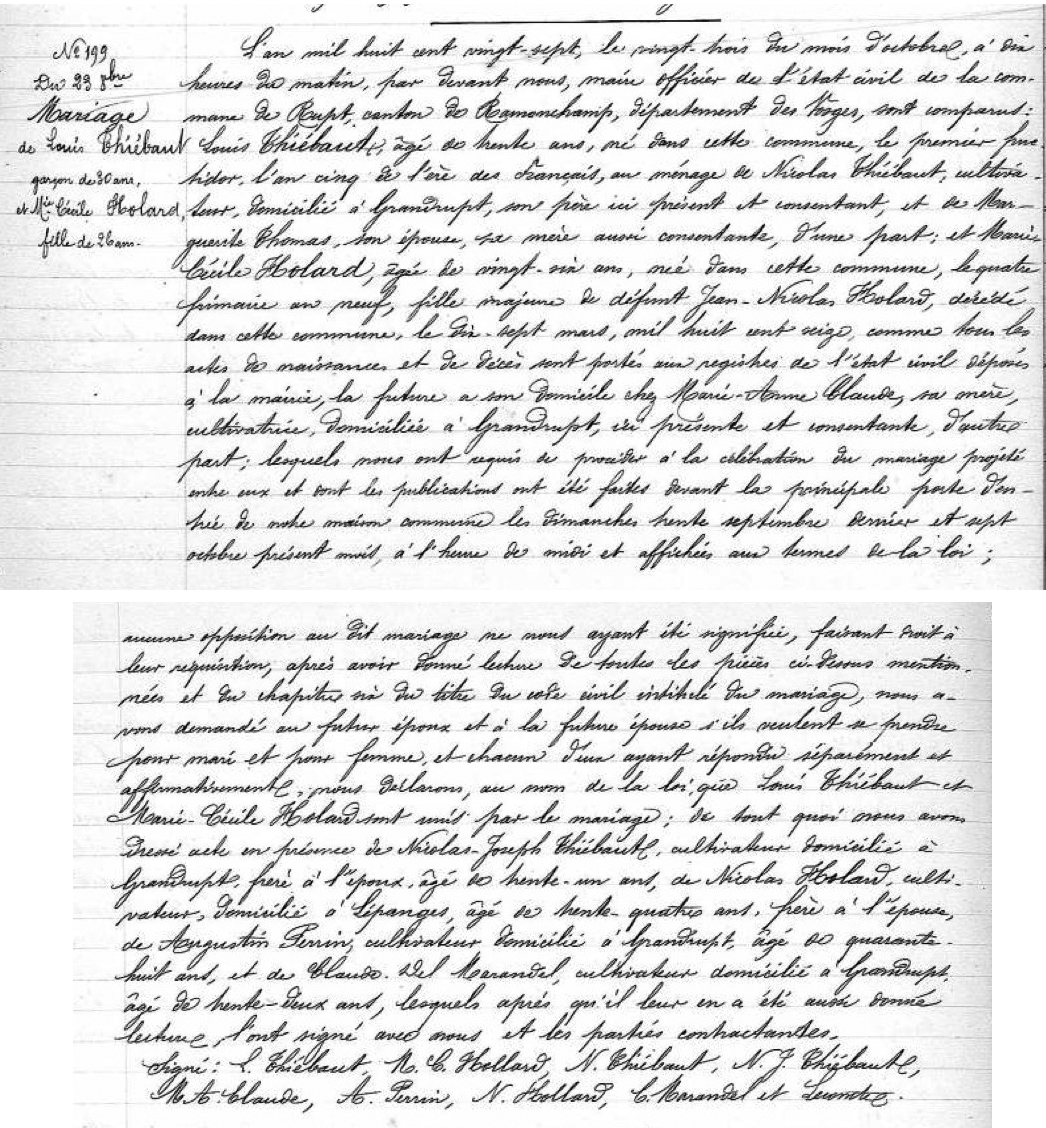 Nº 199
Du 23 8bre
Mariage
de Louis Thiébaut
garçon de 30 ans,
et Mie Cécile Holard,
fille de 26 ans.
L'an mil huit cent vingt-sept, le vingt-trois du mois d'octobre, à dix
heures du matin, par devant nous, maire officier de l'état civil de la com-
mune de Rupt, canton de Ramonchamp, département des Vosges, sont comparus:
Louis Thiébaut, âgé de trente ans, né dans cette commune, le premier fruc-
tidor, l'an cinq de l'ère des Français, au ménage de Nicolas Thiébaut, cultiva-
teur, domicilié à Grandrupt, son père ici présent et consentant, et de Mar-
guerite Thomas, son épouse, sa mère aussi consentante, d'une part; et Marie-
Cécile Holard, âgée de vingt-six ans, née dans cette commune, le quatre
frimaire an neuf, fille majeure de défunt Jean-Nicolas Holard, décédé
dans cette commune, le dix-sept mars, mil huit cent seize, comme tous les
actes de naissances et de décès sont portés aux registres de l'état civil déposés
à la mairie, la future a son domicile chez Marie-Anne Claude, sa mère,
cultivatrice, domiciliée à Grandrupt, ici présente et consentante, d'autre
part; lesquels nous ont requis de procéder à la célébration du mariage projeté
entre eux et dont les publications ont été faites devant la principale porte d'en-
trée de notre maison commune les dimanches trente septembre dernier et sept
octobre présent mois, à l'heure de midi et affichées aux termes de la loi;
aucune opposition au dit mariage ne nous ayant été signifiée, faisant droit à
leur requisition, après avoir donné lecture de toutes les pièces ci-dessus mention-
nées et du chapitre six du titre du code civil intitulé du mariage, nous a-
vons demandé au futur époux et à la future épouse s'ils veulent se prendre
pour mari et pour femme, et chacun d'eux ayant répondu séparément et
affirmativement, nous déclarons, au nom de la loi, que Louis Thiébaut et
Marie-Cécile Holard sont unis par le mariage; de tout quoi nous avons
dressé acte en présence de Nicolas-Joseph Thiébaut, cultivateur domicilié à
Grandrupt, frère à l'époux, âgé de trente-un ans, de Nicolas Holard, culti-
vateur, domicilié à Lépanges, âgé de trente-quatre ans, frère à l'épouse,
de Augustin Perrin, cultivateur domicilié à Grandrupt, âgé de quarante-
huit ans, et de Claude-Del Marandel, cultivateur domicilié à Grandrupt,
âgé de trente-deux ans, lesquels après qu'il leur en a été aussi donné
lecture, l'ont signé avec nous et les parties contractantes.
Signé: L. Thiébaut, M. C. Hollard, N. Thiébaut, N. J. Thiébaut,
M. A. Claude, A. Perrin, N. Hollard, C. Marandel et Lecomte.